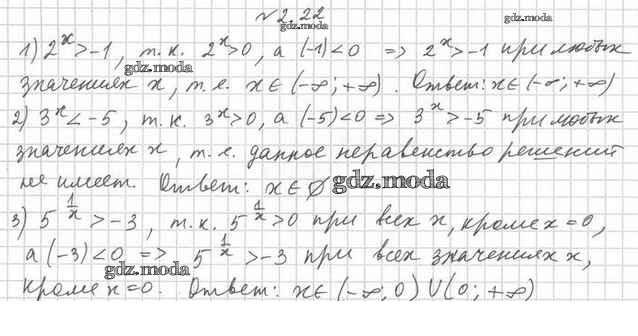 № 2.22
gdz.moda gdz.moda
1) 2^x > -1, т.к. 2^x > 0, а (-1) < 0 => 2^x > -1 при любых
gdz.moda
значениях x, т.е. x ∈ (-∞; +∞). Ответ: x ∈ (-∞; +∞)
2) 3^x < -5, т.к. 3^x > 0, а (-5) < 0 => 3^x > -5 при любых
значениях x, т.е. данное неравенство решений
не имеет. Ответ: x ∈ ∅ gdz.moda
3) 5^(1/x) > -3, т.к. 5^(1/x) > 0 при всех x, кроме x = 0,
а (-3) < 0 => 5^(1/x) > -3 при всех значениях x,
gdz.moda
кроме x = 0. Ответ: x ∈ (-∞; 0) U (0; +∞)